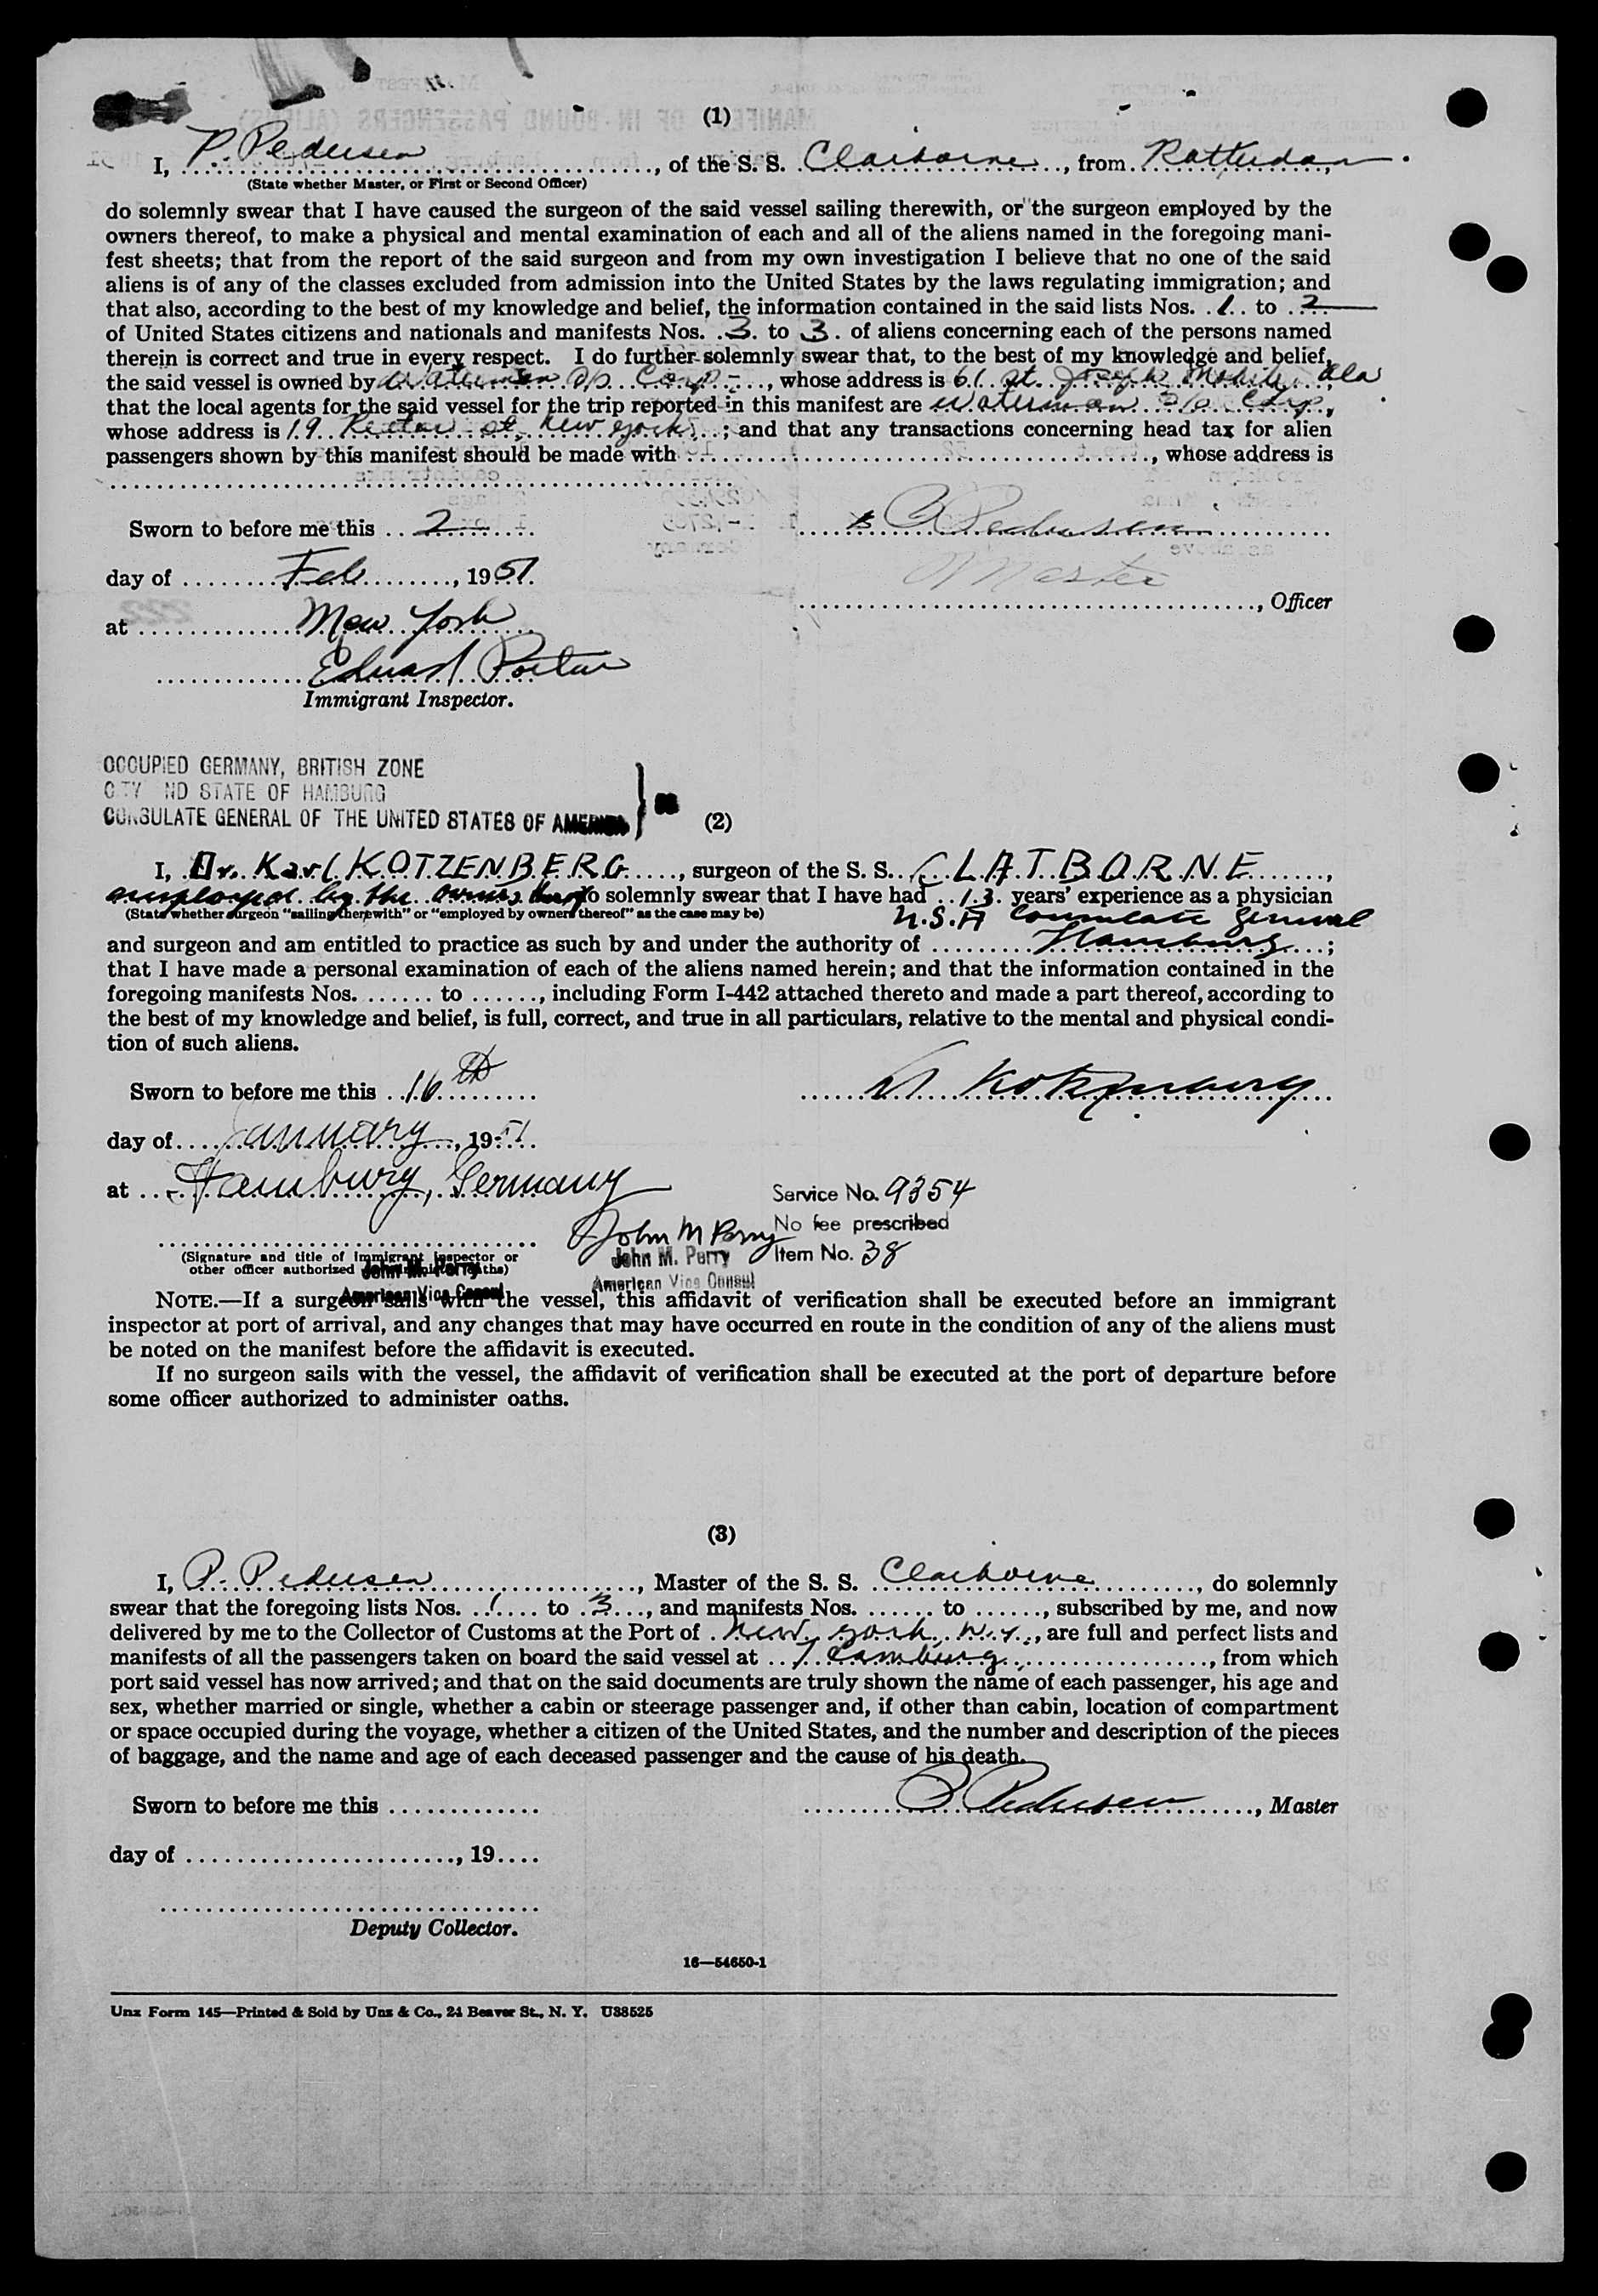 (1)
I, P. Pedersen, of the S. S. Claiborne, from Rotterdam.
(State whether Master, or First or Second Officer)
do solemnly swear that I have caused the surgeon of the said vessel sailing therewith, or the surgeon employed by the
owners thereof, to make a physical and mental examination of each and all of the aliens named in the foregoing mani-
fest sheets; that from the report of the said surgeon and from my own investigation I believe that no one of the said
aliens is of any of the classes excluded from admission into the United States by the laws regulating immigration; and
that also, according to the best of my knowledge and belief, the information contained in the said lists Nos. 1 to 2
of United States citizens and nationals and manifests Nos. 3 to 3 of aliens concerning each of the persons named
therein is correct and true in every respect. I do further solemnly swear that, to the best of my knowledge and belief,
the said vessel is owned by Waterman S/S Corp, whose address is 61 St. Joseph Mobile, Ala
that the local agents for the said vessel for the trip reported in this manifest are Waterman S/S Corp,
whose address is 19 Rector St, New York; and that any transactions concerning head tax for alien
passengers shown by this manifest should be made with ........, whose address is
Sworn to before me this 2
P Pedersen
day of Feb, 1951
Master
, Officer
at New York
Edward Porter
Immigrant Inspector.
OCCUPIED GERMANY, BRITISH ZONE
CITY AND STATE OF HAMBURG
CONSULATE GENERAL OF THE UNITED STATES OF AMERICA } SS
(2)
I, Dr. Karl KOTZENBERG, surgeon of the S. S. CLAIBORNE,
employed by the owners thereof do solemnly swear that I have had 13 years' experience as a physician
(State whether surgeon "sailing therewith" or "employed by owners thereof" as the case may be)
U.S.A Consulate General
and surgeon and am entitled to practice as such by and under the authority of Hamburg;
that I have made a personal examination of each of the aliens named herein; and that the information contained in the
foregoing manifests Nos. ....... to ......, including Form I-442 attached thereto and made a part thereof, according to
the best of my knowledge and belief, is full, correct, and true in all particulars, relative to the mental and physical condi-
tion of such aliens.
Sworn to before me this 16th
Kotzenberg
day of January, 1951
at Hamburg, Germany
Service No. 9354
John M Perry No fee prescribed
(Signature and title of immigrant inspector or
John M. Perry Item No. 38
other officer authorized to administer oaths)
John M. Perry
American Vice Consul
American Vice Consul
NOTE.—If a surgeon sails with the vessel, this affidavit of verification shall be executed before an immigrant
inspector at port of arrival, and any changes that may have occurred en route in the condition of any of the aliens must
be noted on the manifest before the affidavit is executed.
If no surgeon sails with the vessel, the affidavit of verification shall be executed at the port of departure before
some officer authorized to administer oaths.
(3)
I, P. Pedersen, Master of the S. S. Claiborne, do solemnly
swear that the foregoing lists Nos. 1 to 3, and manifests Nos. ...... to ......, subscribed by me, and now
delivered by me to the Collector of Customs at the Port of New York, N.Y., are full and perfect lists and
manifests of all the passengers taken on board the said vessel at Hamburg, from which
port said vessel has now arrived; and that on the said documents are truly shown the name of each passenger, his age and
sex, whether married or single, whether a cabin or steerage passenger and, if other than cabin, location of compartment
or space occupied during the voyage, whether a citizen of the United States, and the number and description of the pieces
of baggage, and the name and age of each deceased passenger and the cause of his death.
Sworn to before me this .............
P Pedersen, Master
day of ........................, 19....
Deputy Collector.
16—54650-1
Unz Form 145—Printed & Sold by Unz & Co., 24 Beaver St., N. Y. U38525